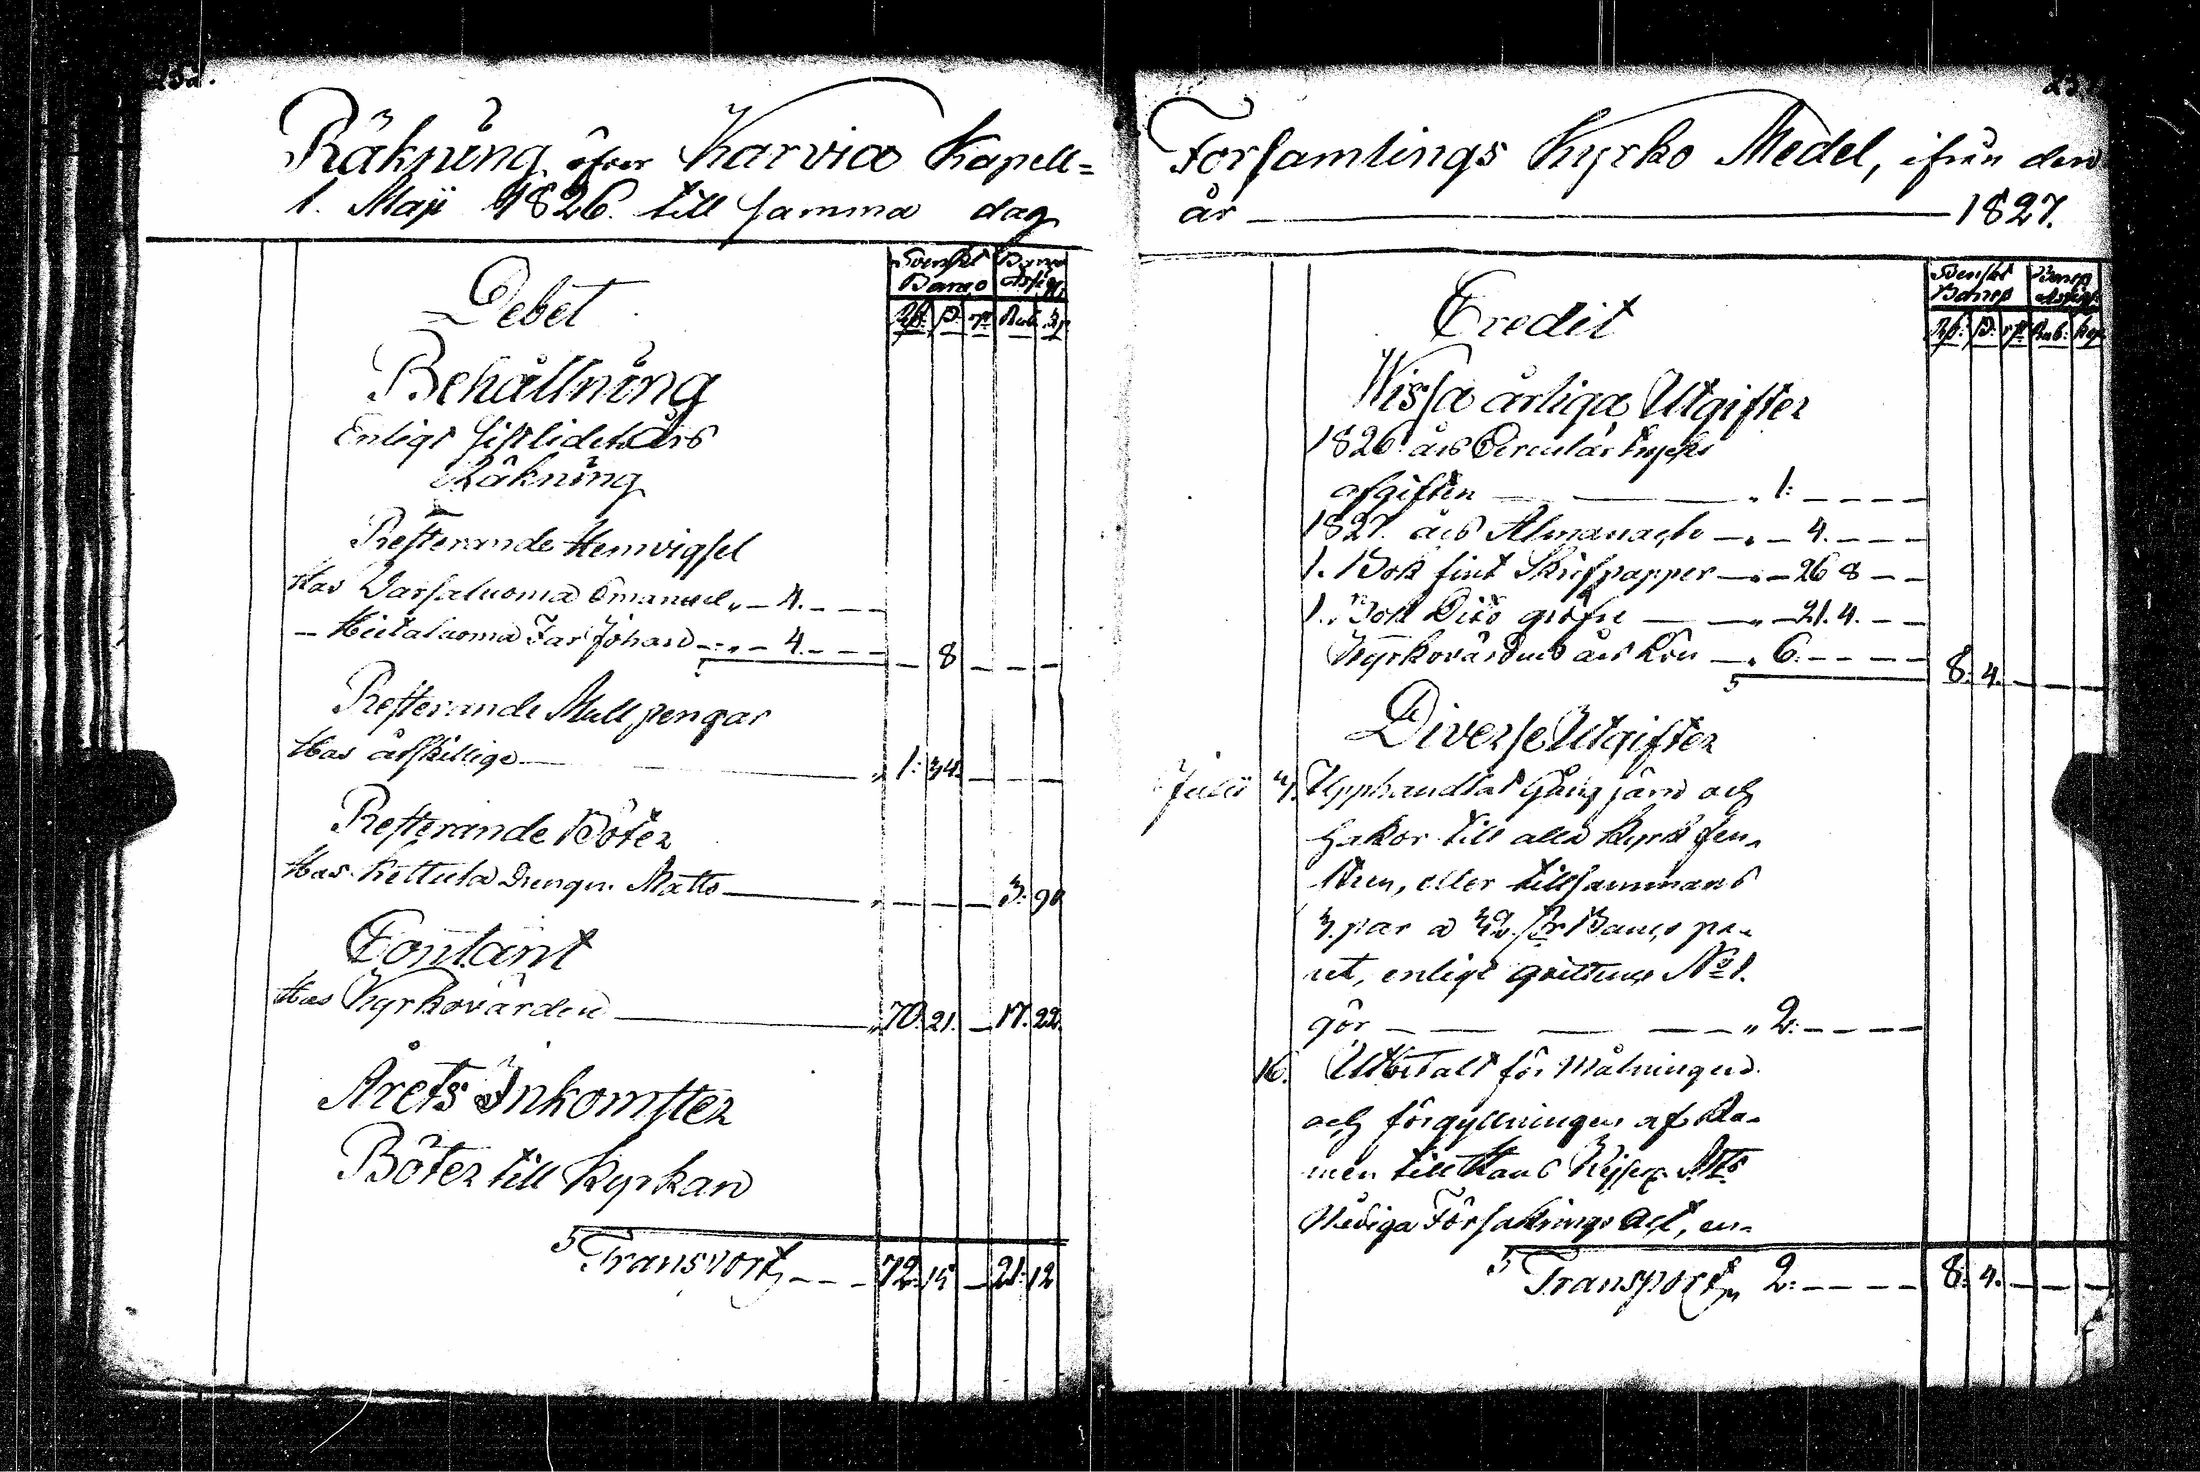 Räkning öfver Karvia Kapell=
1. Maji 1826. till samma dag
Debet
Svenskt Banco
Banco Assign.
Rd: ß: rst
Rub: Kop
Behållning
Enligt sistlidet års
Räkning
Resterande Hemvigsel
Hos Emanuel „ – 4. – – –
– Johan – „ – 4. – – – – 8 – – –
Resterande Mullpengar
Hos åtskillige „ 1: 34. – – –
Resterande Böter
Hos Kettula Drengn. Matts „ – – – 3: 90
Contant
Hos Kyrkovärden „ 70. 21. – 17. 22.
Årets Inkomster
Böter till Kyrkan
Transport – – – 72. 15 – 21. 12
Församlings Kyrko Medel, ifrån den
år — 1827.
Credit
Svenskt Banco
Banco Assign.
Rd: ß: rst Rub: Kop
Wissa årliga Utgifter
1826 års Circulär
afgiften „ 1: – – – –
1827. års Almanach – „ – 4. – – –
1. Bok fint Skrifpapper – „ – 26 8 – –
1. Bok Dito gröfre — „ – 21. 4. – –
Kyrkovärdens års Lön – „ 6. – – – – 8. 4. – – –
Diverse Utgifter
Julii 7. Upphandlat Gångjärn och
Hakor till alla Kyrk fen-
stren, eller tillsammans
3. par a 32. ß Banco pa-
ret, enligt qvittence No 1.
gör – — — — „ 2: – – – –
16. Utbetalt för Målningen
och förgyllningen af Ra-
men till Hans Kejserl. Mts
Nådiga Försäkrings Act, en-
Transport „ 2: – – – – 8: 4. – – –